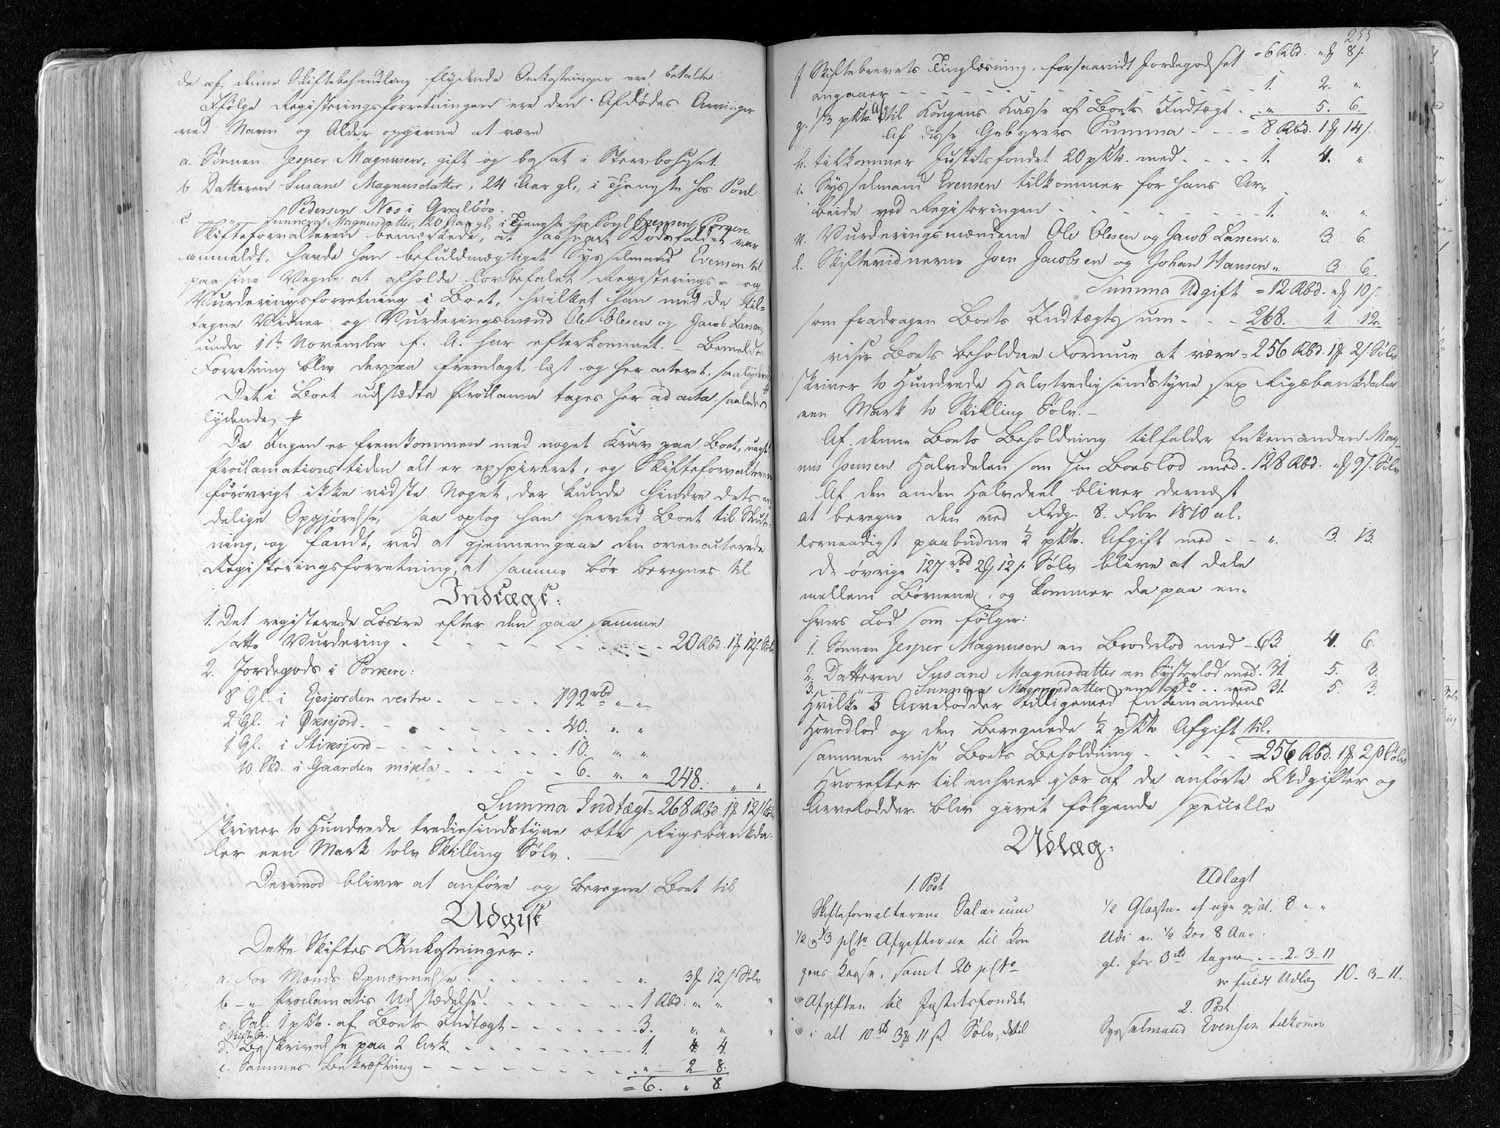 de af denne Skiftebehandling flydende Omkostninger ere betalte
Ifølge Registeringsforretningen ere den Afdødes Arvinger
ved Navn og Alder opgivne at være
a. Sønnen Jesper Magnusen, gift og bosat i Stervbohuset.
b. Datteren Susanne Magnusdatter, 24 Aar gl., i Tjeneste hos Poul
Pedersen Næs i
c. Magnusdatter, 20 Aar gl. i Tjeneste hos Poul
Skifteforvalteren bemærkede, at saasnart Dødsfaldet var
anmeldt, havde han befuldmægtiget Sysselmand Evensen til
paa sine Vegne at afholde Registerings- og
Vurderingsforretning i Boet, hvilket han med de til-
tagne Vidner og Vurderingsmænd Ole Olesen og Jacob Larsen,
under 11te November f. A. har efterkommet. – Bemeldte
Forretning blev derpaa fremlagt, læst og her acteret, saalydende
Det i Boet udstædte Proclama tages her ad acta, saaledes
lydende
Da Ingen er fremkommen med noget Krav paa Boet, uagt
Proclamationstiden alt er expireret, og Skifteforvalteren
forøvrigt ikke vidste Noget, der kunde hindre dets en-
delige Opgjørelse, saa optog han herved Boet til Slut-
ning, og fandt, ved at gjennemgaae den ovenacterede
Registeringsforretning, at samme bør beregnes til
Indtægt:
1. Det registerede Løsøre efter den paa samme
satte Vurdering - - - 20 Rbd. 1 12 s.
2. Jordegods i Porkere:
8 Gl. i vestre - - - 192 rbd " "
2 Gl. i - - - 40. " "
1 Gl. i - - - 10. " "
10 Skd. i Gaarden mikla - - - 6. " " 248. " "
Summa Indtægt - 268 Rbd 1 12 s
skriver to Hundrede tredsindstyve otte Rigsbankda-
ler een Mark tolv Skilling Sølv.
Derimod bliver at anføre og beregne Boet til
Udgift
Dette Skiftes Omkostninger:
a. for Mænds Opnævnelse - - - " 3 12 s Sølv
b - " - Proclamatis Udstædelse - - - 1 Rbd. " "
c. Sal. 1 pCto. af Boets Indtægt - - - 3. " "
d. Beskrivelse paa 2 Ark - - - 1. 4. 4.
e. Sammes Bekræftning - - - " 2 8.
= 6. " 8.
255
f Skiftebrevets Tinglæsning, forsaavidt Jordegodset = 6 Rbd. " 8 s.
angaaer - - - 1. 2. "
g. 1/3 pCto. Afg. til Kongens Kasse af Boets Indtægt - - " 5. 6.
Af disse Gebyrers Summa - - = 8 Rbd. 1 14 s.
h. tilkommer Justitsfondet 20 pCto. med - - - 1. 4. "
i. Sysselmand Evensen tilkommer for hans Ar-
beide ved Registeringen - - - 1. " "
k. Vurderingsmændene Ole Olesen og Jacob Larsen " 3. 6.
l. Skiftevidnerne Joen Jacobsen og Johan Hansen " 3. 6.
Summa Udgift = 12 Rbd. " 10 s.
som fradragen Boets Indtægtssum - - - 268. 1. 12.
viser Boets beholdne Formue at være = 256 Rbd. 1 2 s Sølv
skriver to Hundrede Halvtredsindstyve sex Rigsbankdaler
een Mark to Skilling Sølv. –
Af denne Boets Beholdning tilfalder Enkemanden Mag-
nus Joensen Halvdelen som sin Boeslod med - 128 Rbd. " 9 s. Sølv
Af den anden Halvdeel bliver dernæst
at beregne den ved Frdg. 8. Febr 1810 al-
lernaadigst paabudne 1/2 pCto. Afgift med - - " 3. 13.
De øvrige 127 rbd 2 12 s Sølv blive at dele
mellem Børnene, og kommer da paa en-
hvers Lod som følger:
1. Sønnen Jesper Magnusen en Broderlod med - 63. 4. 6.
2. Datteren Susanne Magnusdatter en Søsterlod med. 31. 5. 3.
3. Magnusdatter med 31. 5. 3.
Hvilke 3 Arvelodder tilligemed Enkemandens
Hovedlod og den beregnede 1/2 pCto Afgift til-
sammen vise Boets Beholdning - - - = 256 Rbd. 1 2 s Sølv
Hvorefter til enhver især af de anførte Udgifter og
Arvelodder blev gjort følgende specielle
Udlæg:
1. Post
Skifteforvalterens Salarium
1/2 og 1/3 pCto Afgifterne til Kon-
gens Kasse, samt 20 pCto
Afgiften til Justitsfondet
i alt 10 rbd 3 11 s Sølv,
Udlagt
1/2 8 " "
Udi en 1/2 Koe 8 Aar
gl. for 3 rbd tages - - 2. 3. 11
er fuldt Udlæg 10. 3. 11.
2. Post
Sysselmand Evensen tilkommer